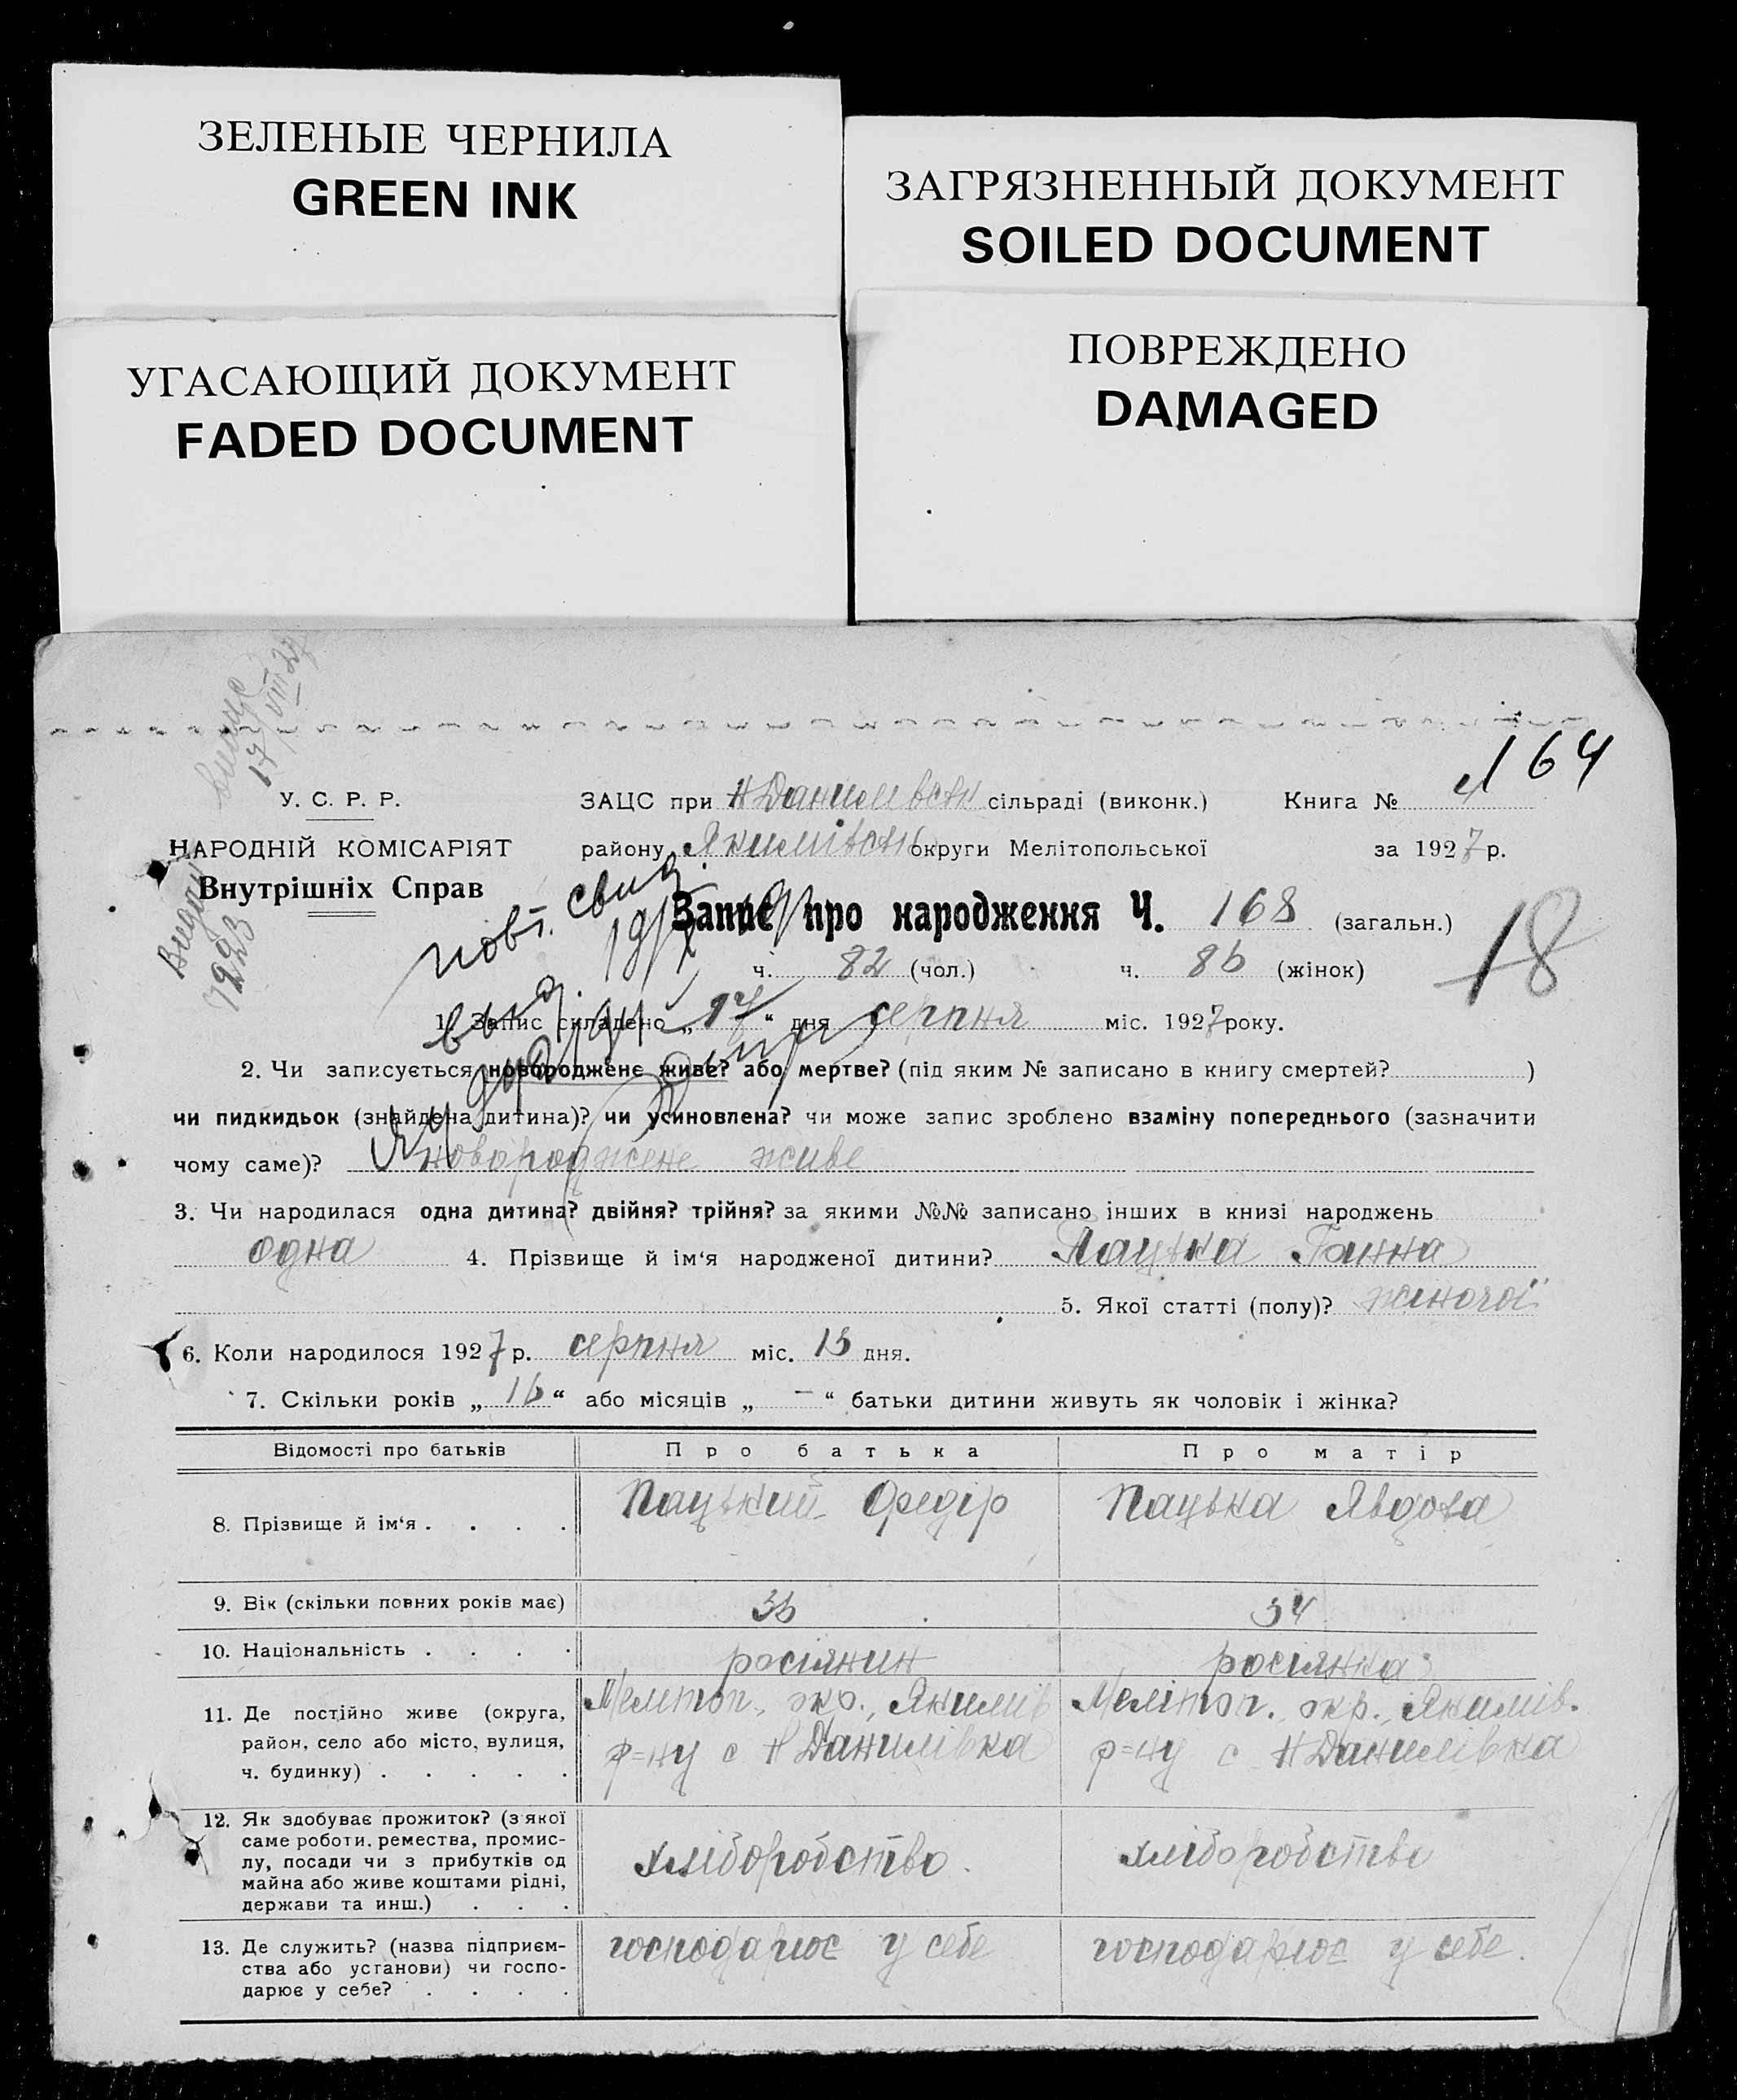 ЗЕЛЕНЫЕ ЧЕРНИЛА
GREEN INK
ЗАГРЯЗНЕННЫЙ ДОКУМЕНТ
SOILED DOCUMENT
УГАСАЮЩИЙ ДОКУМЕНТ
FADED DOCUMENT
ПОВРЕЖДЕНО
DAMAGED
17/VIII 27
164
У. С. Р. Р.
ЗАЦС при Н Данилівськ сільраді (виконк.) Книга №
НАРОДНІЙ КОМІСАРІЯТ
району Якимівськ округи Мелітопольської за 1927 р.
Внутрішніх Справ
повт. свид.
Запис про народження Ч. 168 (загальн.)
18
ч. 82 (чол.) ч. 86 (жінок)
1. Запис складено „17“ дня серпня міс. 1927 року.
2. Чи записується новороджене живе? або мертве? (під яким № записано в книгу смертей? )
чи пидкидьок (знайдена дитина)? чи усиновлена? чи може запис зроблено взаміну попереднього (зазначити
чому саме)? новороджене живе
3. Чи народилася одна дитина? двійня? трійня? за якими №№ записано інших в книзі народжень
одна 4. Прізвище й ім‘я народженої дитини? Пацька Ганна
5. Якої статті (полу)? жіночої
6. Коли народилося 1927 р. серпня міс. 15 дня.
7. Скільки років „16“ або місяців „—“ батьки дитини живуть як чоловік і жінка?
Відомості про батьків Про батька Про матір
8. Прізвище й ім‘я . . . . Пацький Федір Пацька Явдоха
9. Вік (скільки повних років має) 36 34
10. Національність . . . . росіянин росіянка
11. Де постійно живе (округа, Меліт​оп. окр., Якимів Мелітоп. окр., Якимів.
район, село або місто, вулиця, р=ну с Н Данилівка р=ну с Н Данилівка
ч. будинку) . . . . .
12. Як здобуває прожиток? (з якої
саме роботи, ремества, промис-
лу, посади чи з прибутків од хліборобство. хліборобство
майна або живе коштами рідні,
держави та инш.) . . .
13. Де служить? (назва підприєм- господарює у себе господарює у себе.
ства або установи) чи госпо-
дарює у себе? . . . .